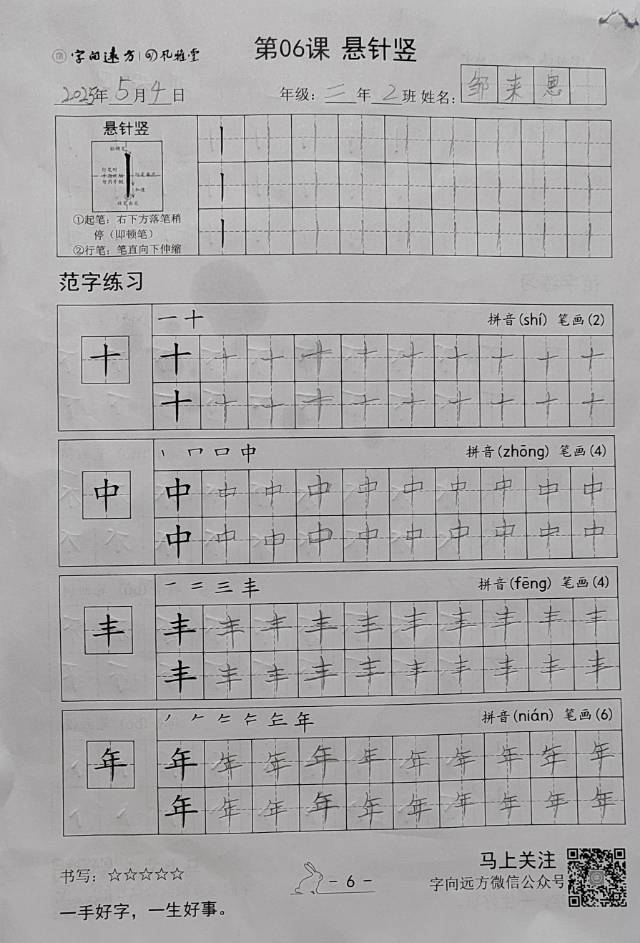 第06课 悬针竖
字向远方 孔雅堂
2025年5月4日 年级:二年2班 姓名:邹来恩
悬针竖
①起笔:右下方落笔稍
停(即顿笔)
②行笔:笔直向下伸缩
范字练习
一十 拼音(shí) 笔画(2)
十 十 十 十 十 十 十 十 十 十 十
十 十 十 十 十 十 十 十 十 十
丶 冖 口 中 拼音(zhōng) 笔画(4)
中 中 中 中 中 中 中 中 中 中 中
中 中 中 中 中 中 中 中 中 中
一 二 三 丰 拼音(fēng) 笔画(4)
丰 丰 丰 丰 丰 丰 丰 丰 丰 丰 丰
丰 丰 丰 丰 丰 丰 丰 丰 丰 丰
年 拼音(nián) 笔画(6)
年 年 年 年 年 年 年 年 年 年 年
年 年 年 年 年 年 年 年 年 年
书写:☆☆☆☆☆
- 6 -
马上关注
字向远方微信公众号
一手好字,一生好事。